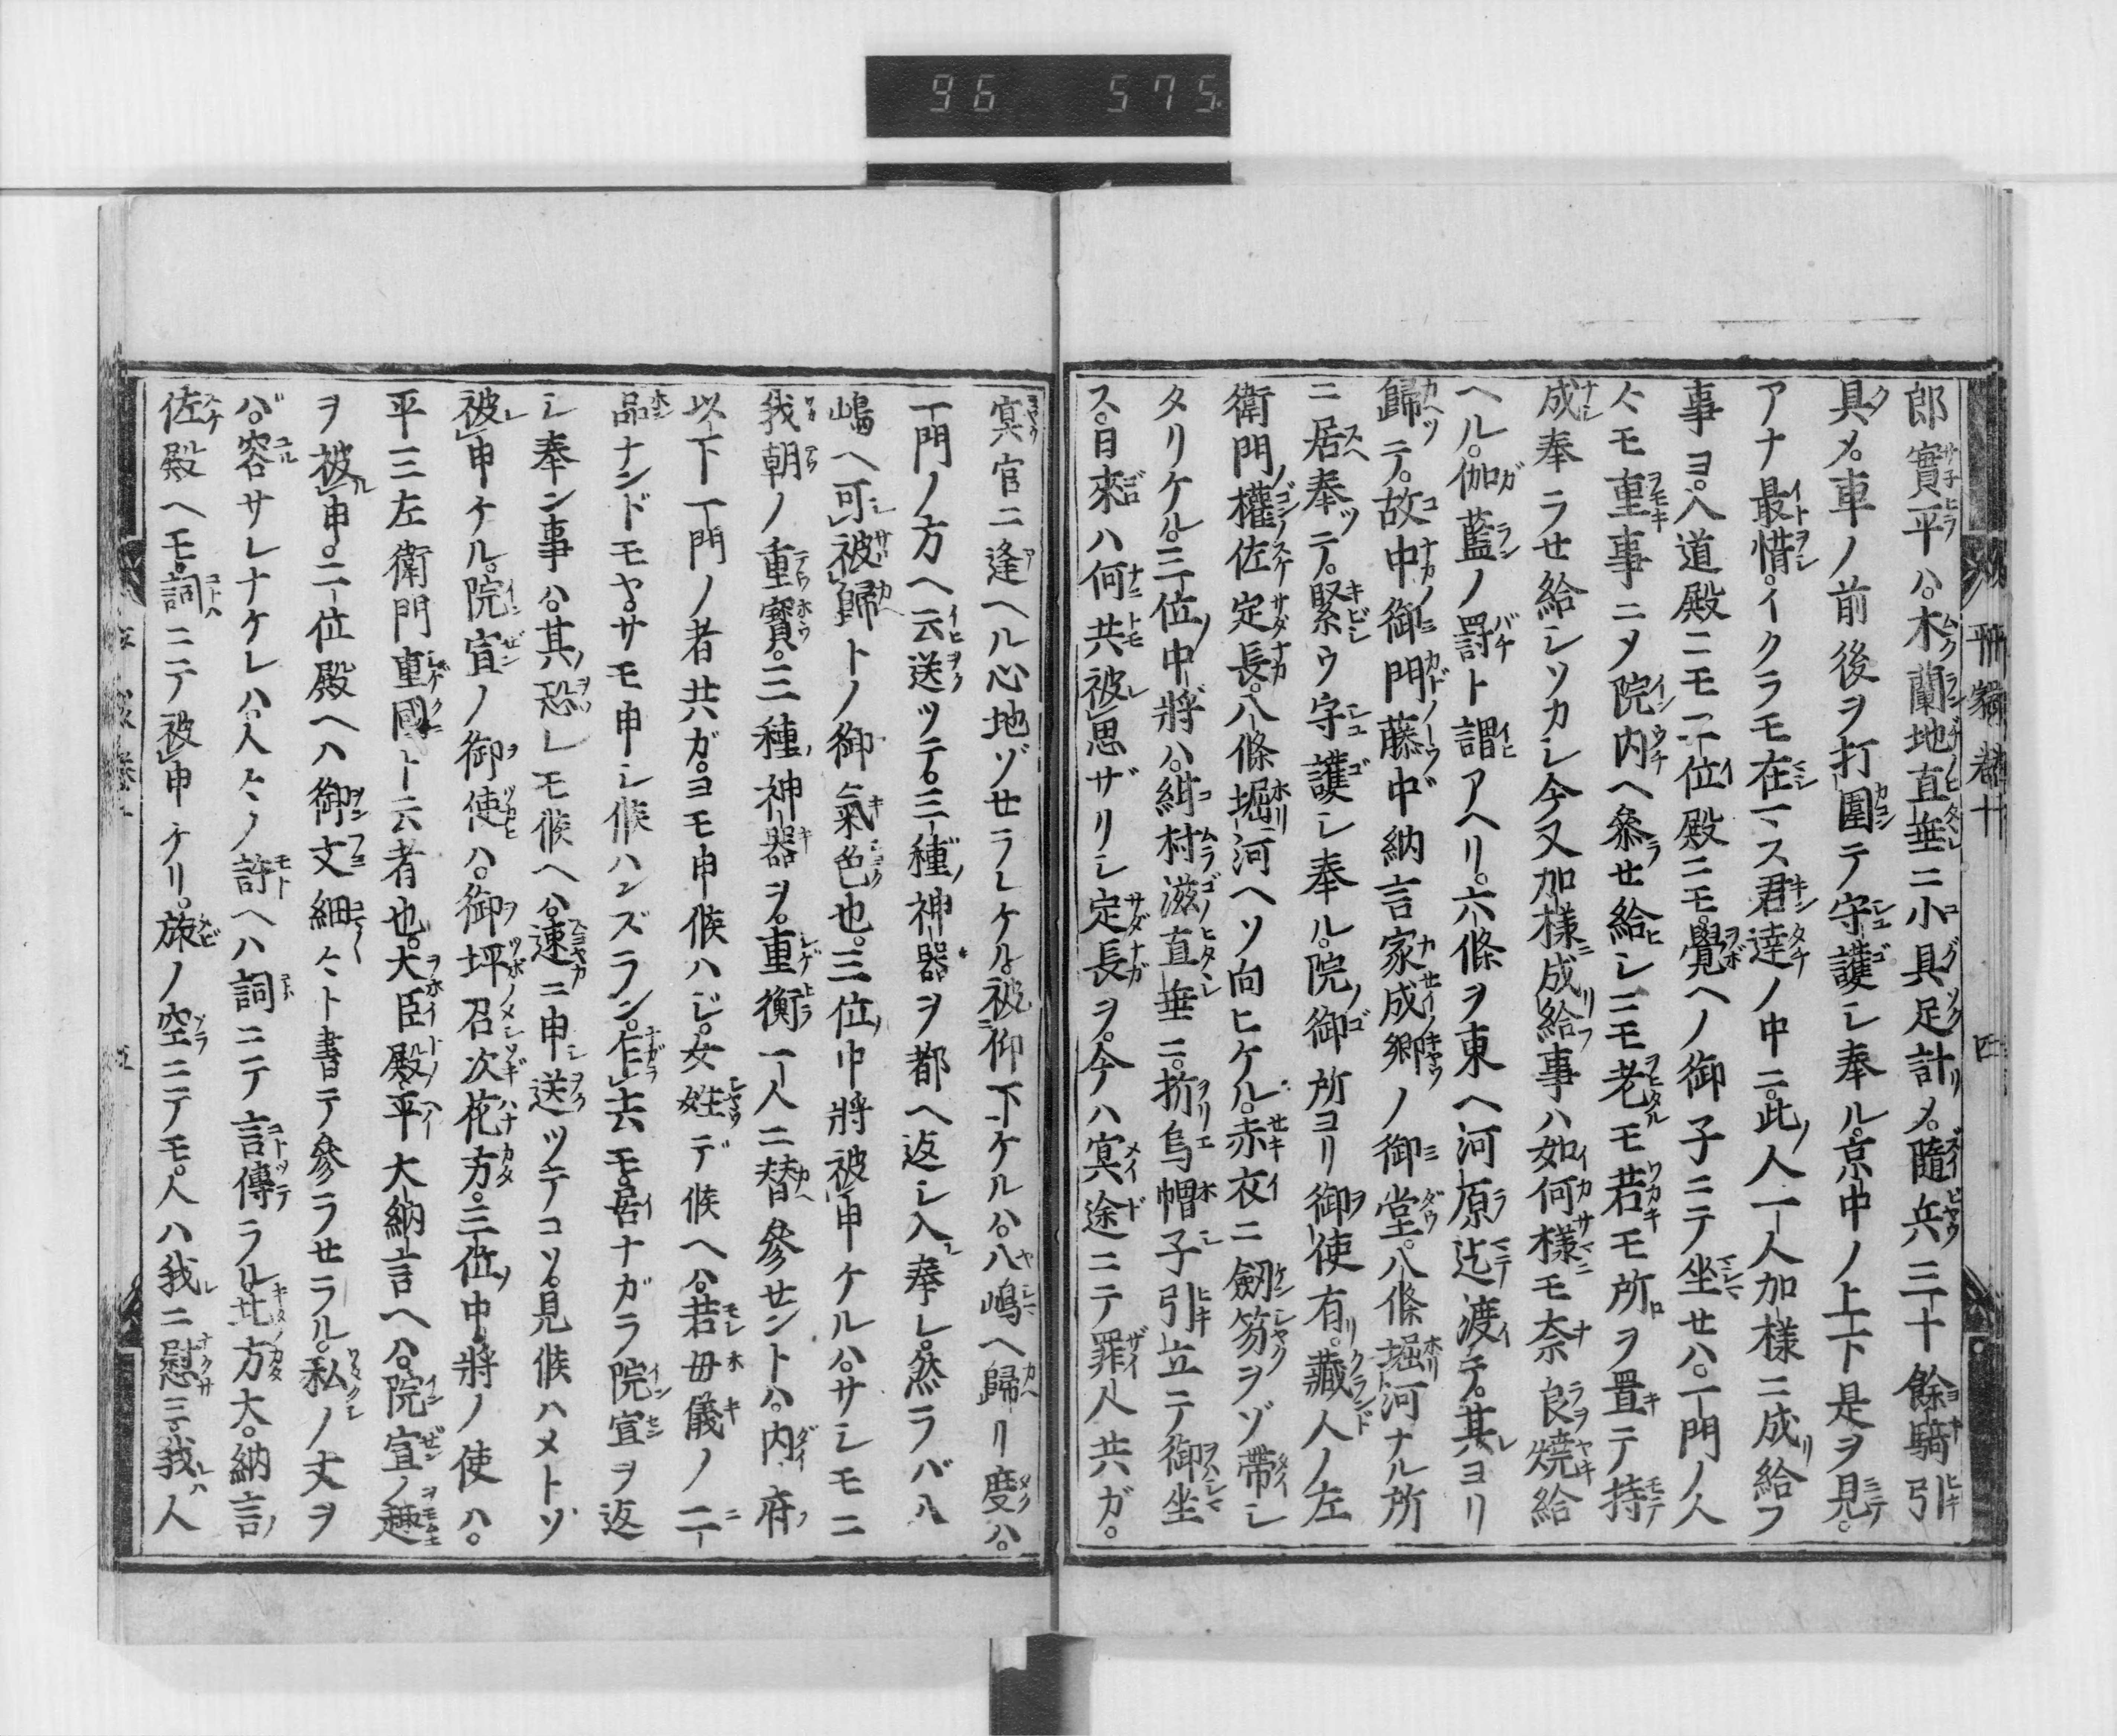 96 575
郎實平ハ。木蘭地直垂ニ小具足計メ。隨兵三十餘騎引
具メ。車ノ前後ヲ打圍テ守護シ奉ル。京中ノ上下是ヲ見。
アナ最惜。イクラモ在〻ス君達ノ中ニ。此人一人加樣ニ成給フ
事ヨ。入道殿ニモ二位殿ニモ。覺ヘノ御子ニテ坐セハ。一門ノ人
〻モ重事ニメ院内ヘ參セ給シニモ老モ若モ所ヲ置テ持
成奉ラせ給シソカシ今又加樣成給事ハ如何樣モ奈良燒給
ヘル。伽藍ノ罸ト謂アヘリ。六條ヲ東ヘ河原迄渡テ。其ヨリ
歸テ。故中御門藤中納言家成卿ノ御堂。八條堀河ナル所
ニ居奉テ。緊ウ守護シ奉ル。院御所ヨリ御使有。藏人ノ左
衛門權佐定長。八條堀河ヘソ向ヒケル。赤衣ニ劔笏ヲゾ帶シ
タリケル。三位中將ハ。紺村滋直垂ニ。折烏帽子引立テ御坐
ス。日來ハ何共被思ザリシ定長ヲ。今ハ冥途ニテ罪人共ガ。
冥官ニ逢ヘル心地ゾせラレケル。被仰下ケルハ。八嶋ヘ歸リ度ハ。
一門ノ方ヘ云送ツテ。三種神器ヲ都ヘ返シ入奉レ。然ラバ八
嶋ヘ可被歸トノ御氣色也。三位中將被申ケルハ。サシモニ
我朝ノ重寳。三種神器ヲ。重衡一人ニ替參せントハ。内府
以下一門ノ者共ガ。ヨモ申候ハジ。女姓デ候ヘハ。若毋儀ノ二
品ナンドモヤ。サモ申シ候ハンズラン。乍去モ。居ナガラ院宣ヲ返
シ奉ン事ハ。其恐レモ候ヘハ。速ニ申送ツテコソ。見候ハメトゾ
被申ケル。院宣ノ御使ハ。御坪召次花方。三位中將ノ使ハ。
平三左衛門重國ト云者也。大臣殿平大納言ヘハ。院宣ノ趣
ヲ被申。二位殿ヘハ御文細〻ト書テ參ラせラル。私ノ文ヲ
バ。容サレナケレハ。人〻ノ許ヘハ詞ニテ言傳ラル。北方大納言
佐殿ヘモ。詞ニテ被申ケリ。旅ノ空ニテモ。人ハ我ニ慰ミ。我ハ人